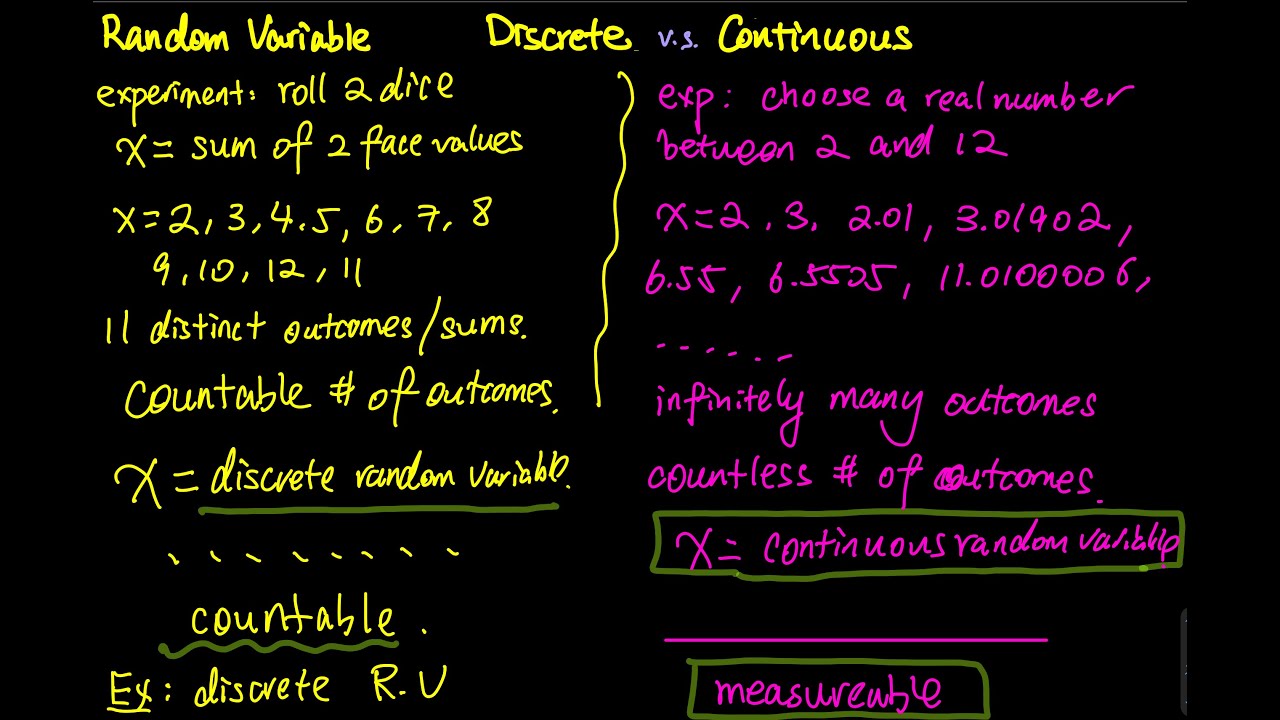 Random Variable Discrete v.s. Continuous
experiment: roll 2 dice
x = sum of 2 face values
x = 2, 3, 4. 5, 6, 7, 8
9, 10, 12, 11
11 distinct outcomes/sums.
Countable # of outcomes.
x = discrete random variable.
. . . . . . . .
countable.
Ex: discrete R.V
exp: choose a real number
between 2 and 12
x = 2, 3. 2.01, 3.01902,
6.55, 6.5505, 11.0100006,
. . . . . .
infinitely many outcomes
countless # of outcomes.
x = continuous random variable
measureable